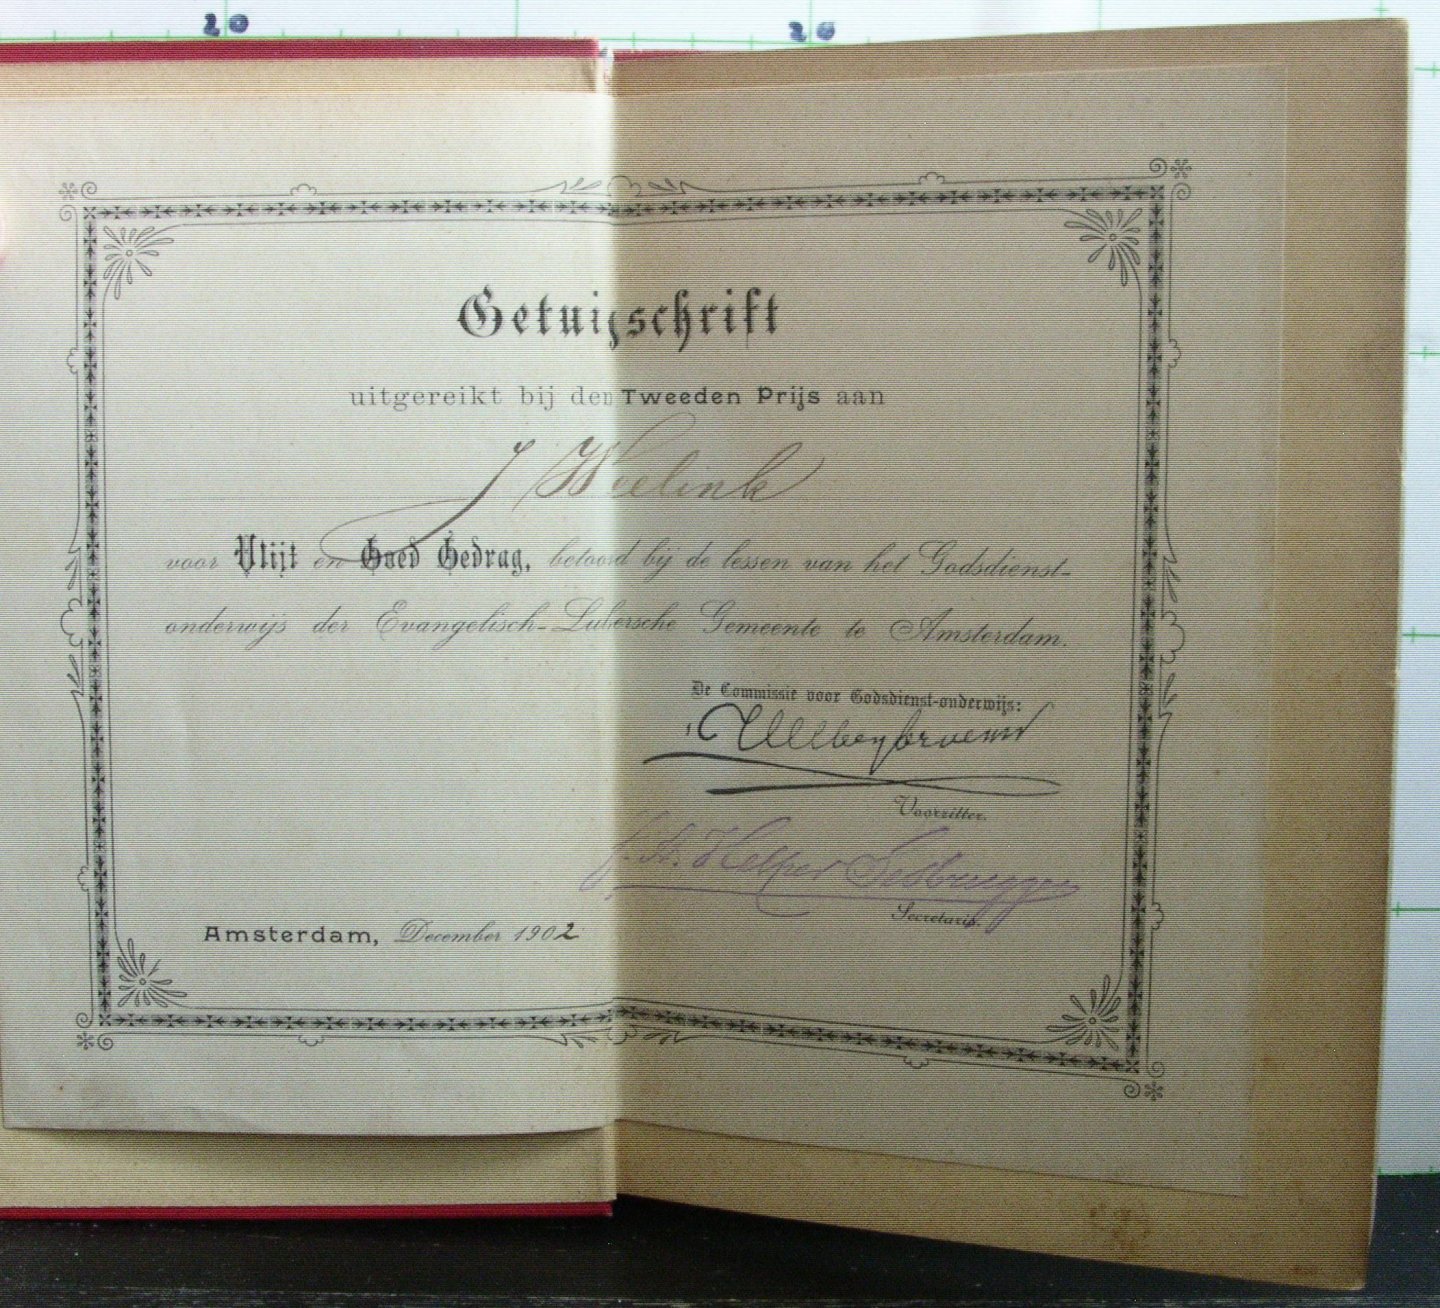 20
20
Getuigschrift
uitgereikt bij den Tweeden Prijs aan
J Weelink
voor Vlijt en Goed Gedrag, betoond bij de lessen van het Godsdienst-
onderwijs der Evangelisch-Lutersche Gemeente te Amsterdam.
De Commissie voor Godsdienst-onderwijs:
Voorzitter.
Helper
Secretaris.
Amsterdam, December 1902